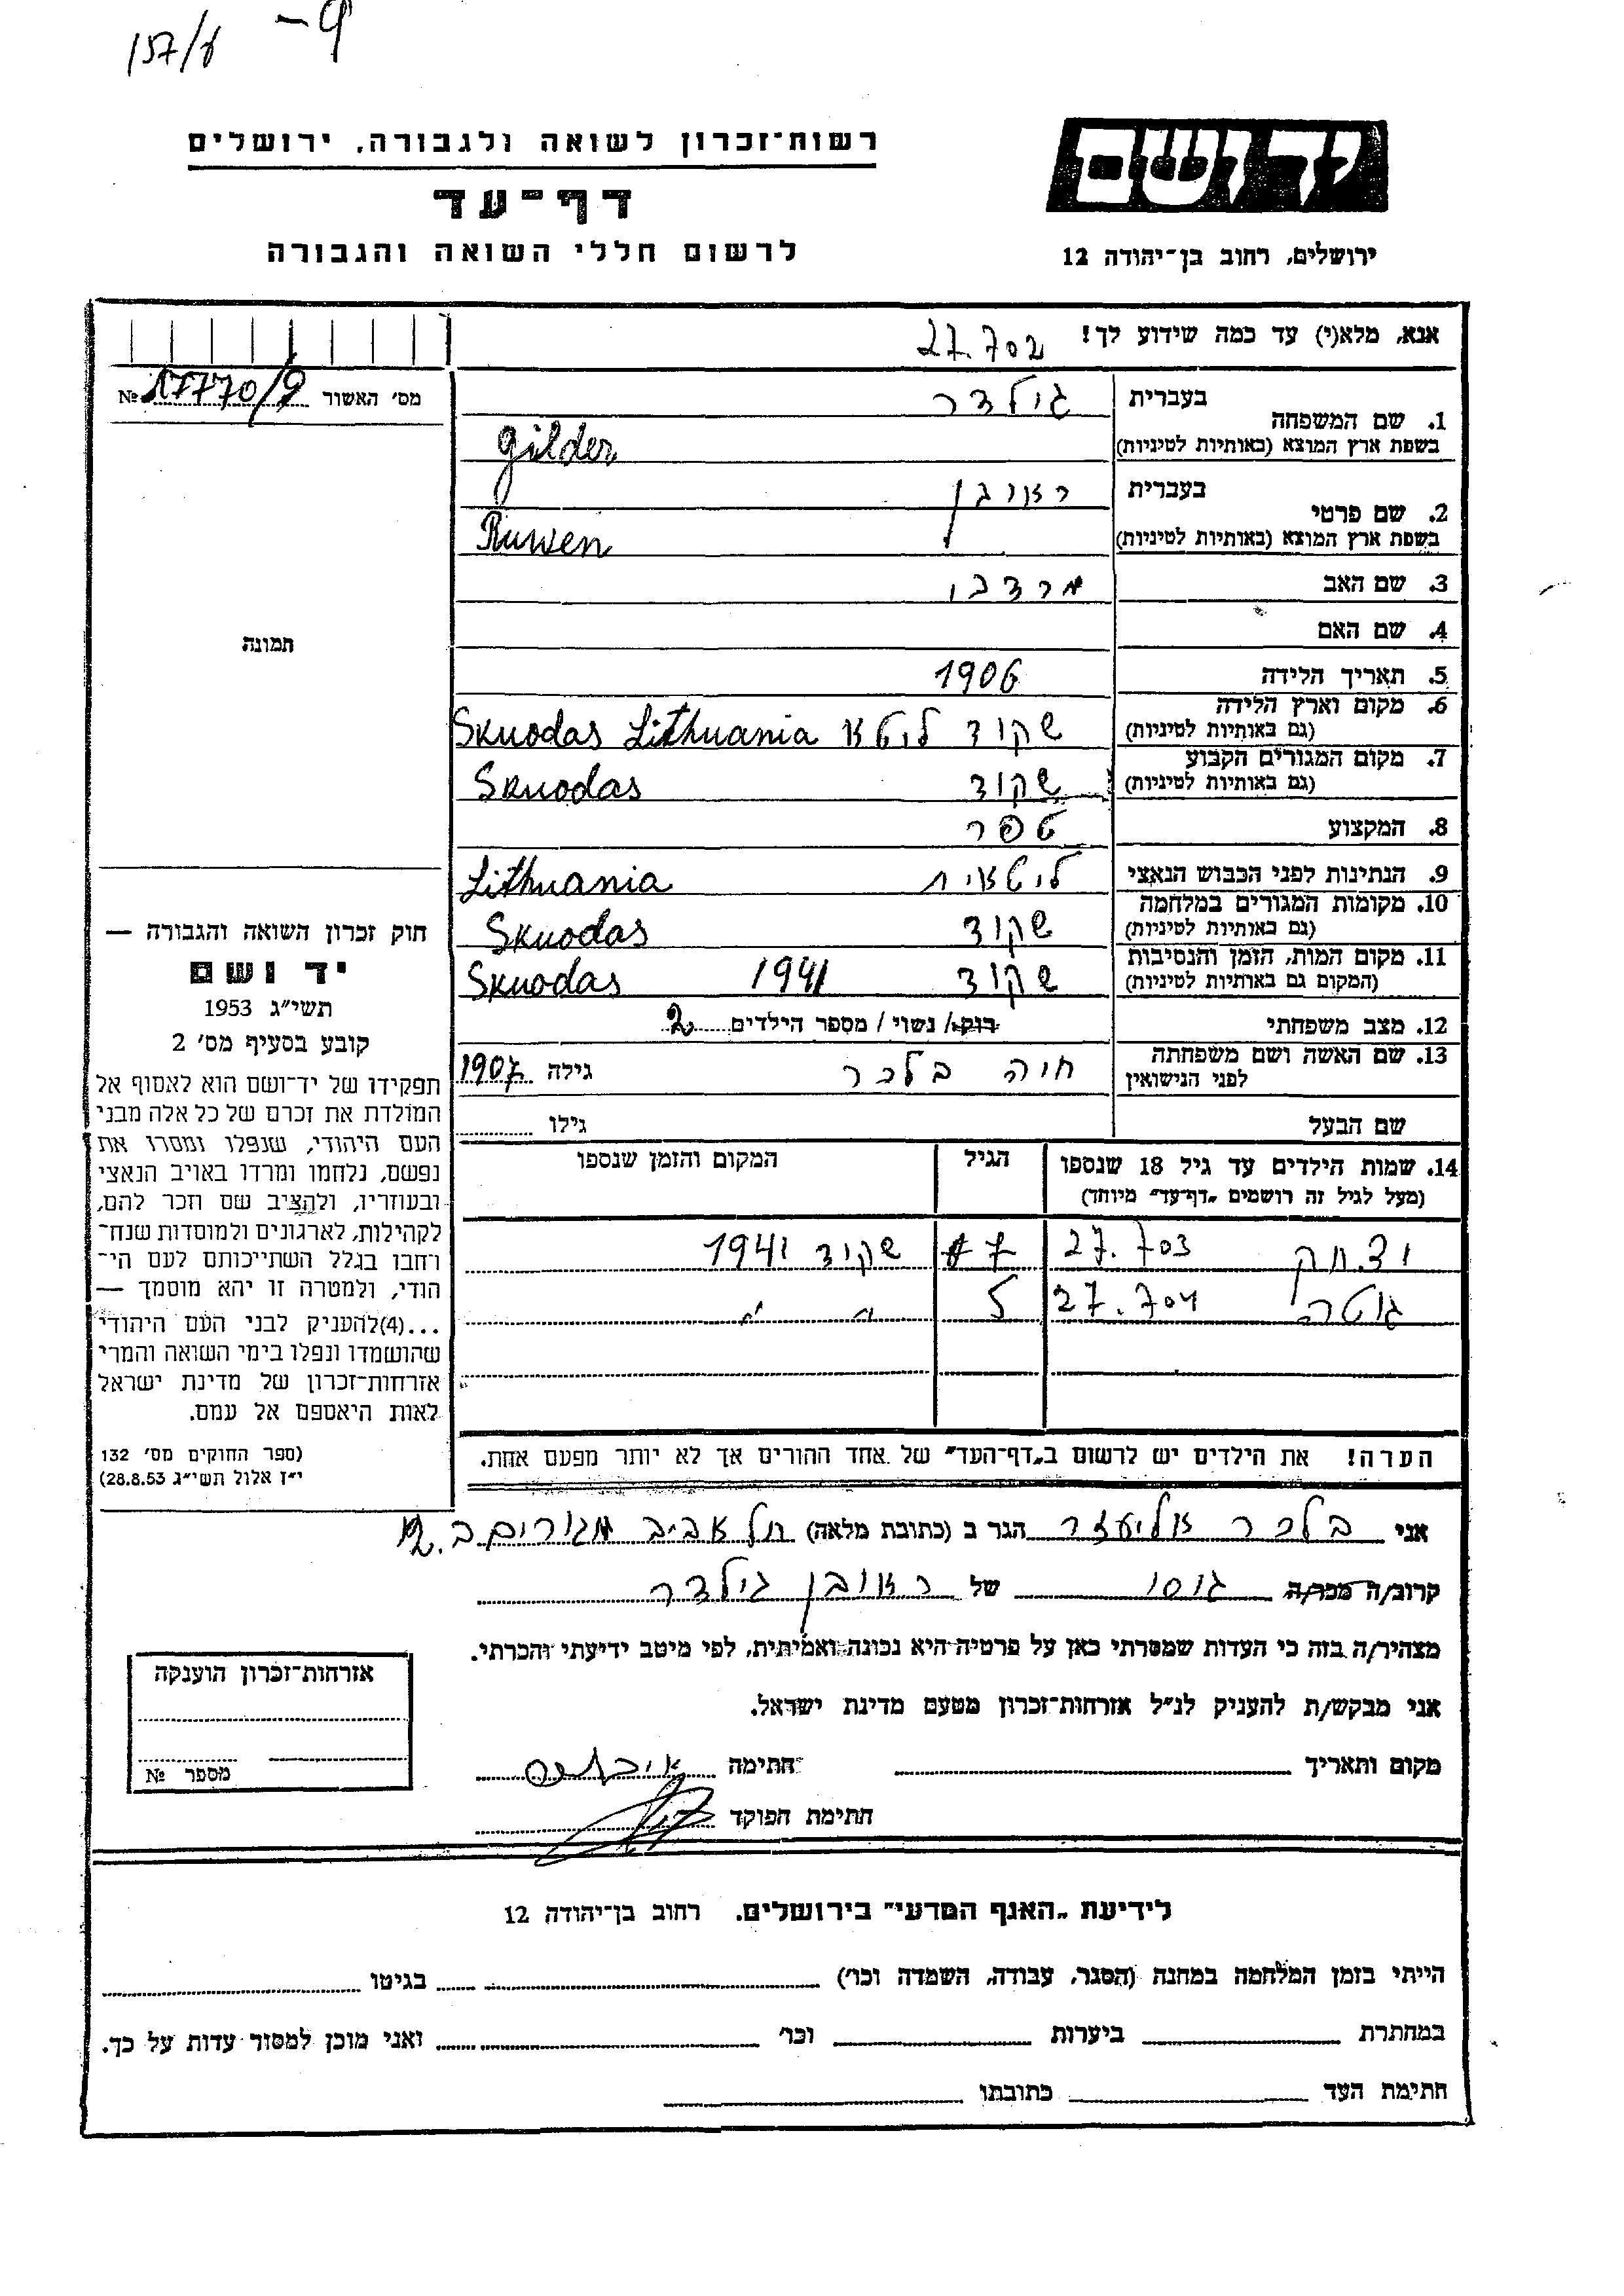 157/ע -9
רשות־זכרון לשואה ולגבורה, ירושלים
דף־עד
לרשום חללי השואה והגבורה
יד ושם
ירושלים, רחוב בן־יהודה 12
אנא, מלא(י) עד כמה שידוע לך! 27.702
מס׳ האשור 17770/9 №
1. שם המשפחה בעברית גילדר
בשפת ארץ המוצא (באותיות לטיניות) Gilder
2. שם פרטי בעברית ראובן
בשפת ארץ המוצא (באותיות לטיניות) Ruwen
3. שם האב מרדכי
4. שם האם
5. תאריך הלידה 1906
6. מקום וארץ הלידה (גם באותיות לטיניות) שקוד ליטא Skuodas Lithuania
7. מקום המגורים הקבוע (גם באותיות לטיניות) שקוד Skuodas
8. המקצוע ספר
9. הנתינות לפני הכבוש הנאצי ליטאית Lithuania
10. מקומות המגורים במלחמה (גם באותיות לטיניות) שקוד Skuodas
11. מקום המות, הזמן והנסיבות (המקום גם באותיות לטיניות) שקוד 1941 Skuodas
12. מצב משפחתי רוק/ נשוי / מספר הילדים 2
13. שם האשה ושם משפחתה לפני הנישואין חיה בלכר גילה 1907
שם הבעל גילו
14. שמות הילדים עד גיל 18 שנספו (מעל לגיל זה רושמים „דף־עד״ מיוחד) הגיל המקום והזמן שנספו
יצחק 27.703 7 שקוד 1941
גוטה 27.704 5 " "
הערה! את הילדים יש לרשום ב„דף־העד״ של אחד ההורים אך לא יותר מפעם אחת.
תמונה
חוק זכרון השואה והגבורה —
יד ושם
תשי״ג 1953
קובע בסעיף מס׳ 2
תפקידו של יד־ושם הוא לאסוף אל
המולדת את זכרם של כל אלה מבני
העם היהודי, שנפלו ומסרו את
נפשם, נלחמו ומרדו באויב הנאצי
ובעוזריו, ולהציב שם וזכר להם,
לקהילות, לארגונים ולמוסדות שנח־
רחבו בגלל השתייכותם לעם הי־
הודי, ולמטרה זו יהא מוסמך —
...(4)להעניק לבני העם היהודי
שהושמדו ונפלו בימי השואה והמרי
אזרחות־זכרון של מדינת ישראל
לאות היאספם אל עמם.
(ספר החוקים מס׳ 132
י״ז אלול תשי״ג 28.8.53)
אני בלכר אליעזר הגר ב (כתובת מלאה) תל אביב מגורים ב. 12
קרוב/ה מכר/ה גיסו של ראובן גילדר
מצהיר/ה בזה כי העדות שמסרתי כאן על פרטיה היא נכונה ואמיתית, לפי מיטב ידיעתי והכרתי.
אני מבקש/ת להעניק לנ״ל אזרחות־זכרון מטעם מדינת ישראל.
מקום ותאריך חתימה
חתימת הפוקד
אזרחות־זכרון הוענקה
מספר №
לידיעת „האגף המדעי״ בירושלים. רחוב בן־יהודה 12
הייתי בזמן המלחמה במחנה (הסגר, עבודה, השמדה וכו׳) בגיטו
במחתרת ביערות וכו׳ ואני מוכן למסור עדות על כך.
חתימת העד כתובתו